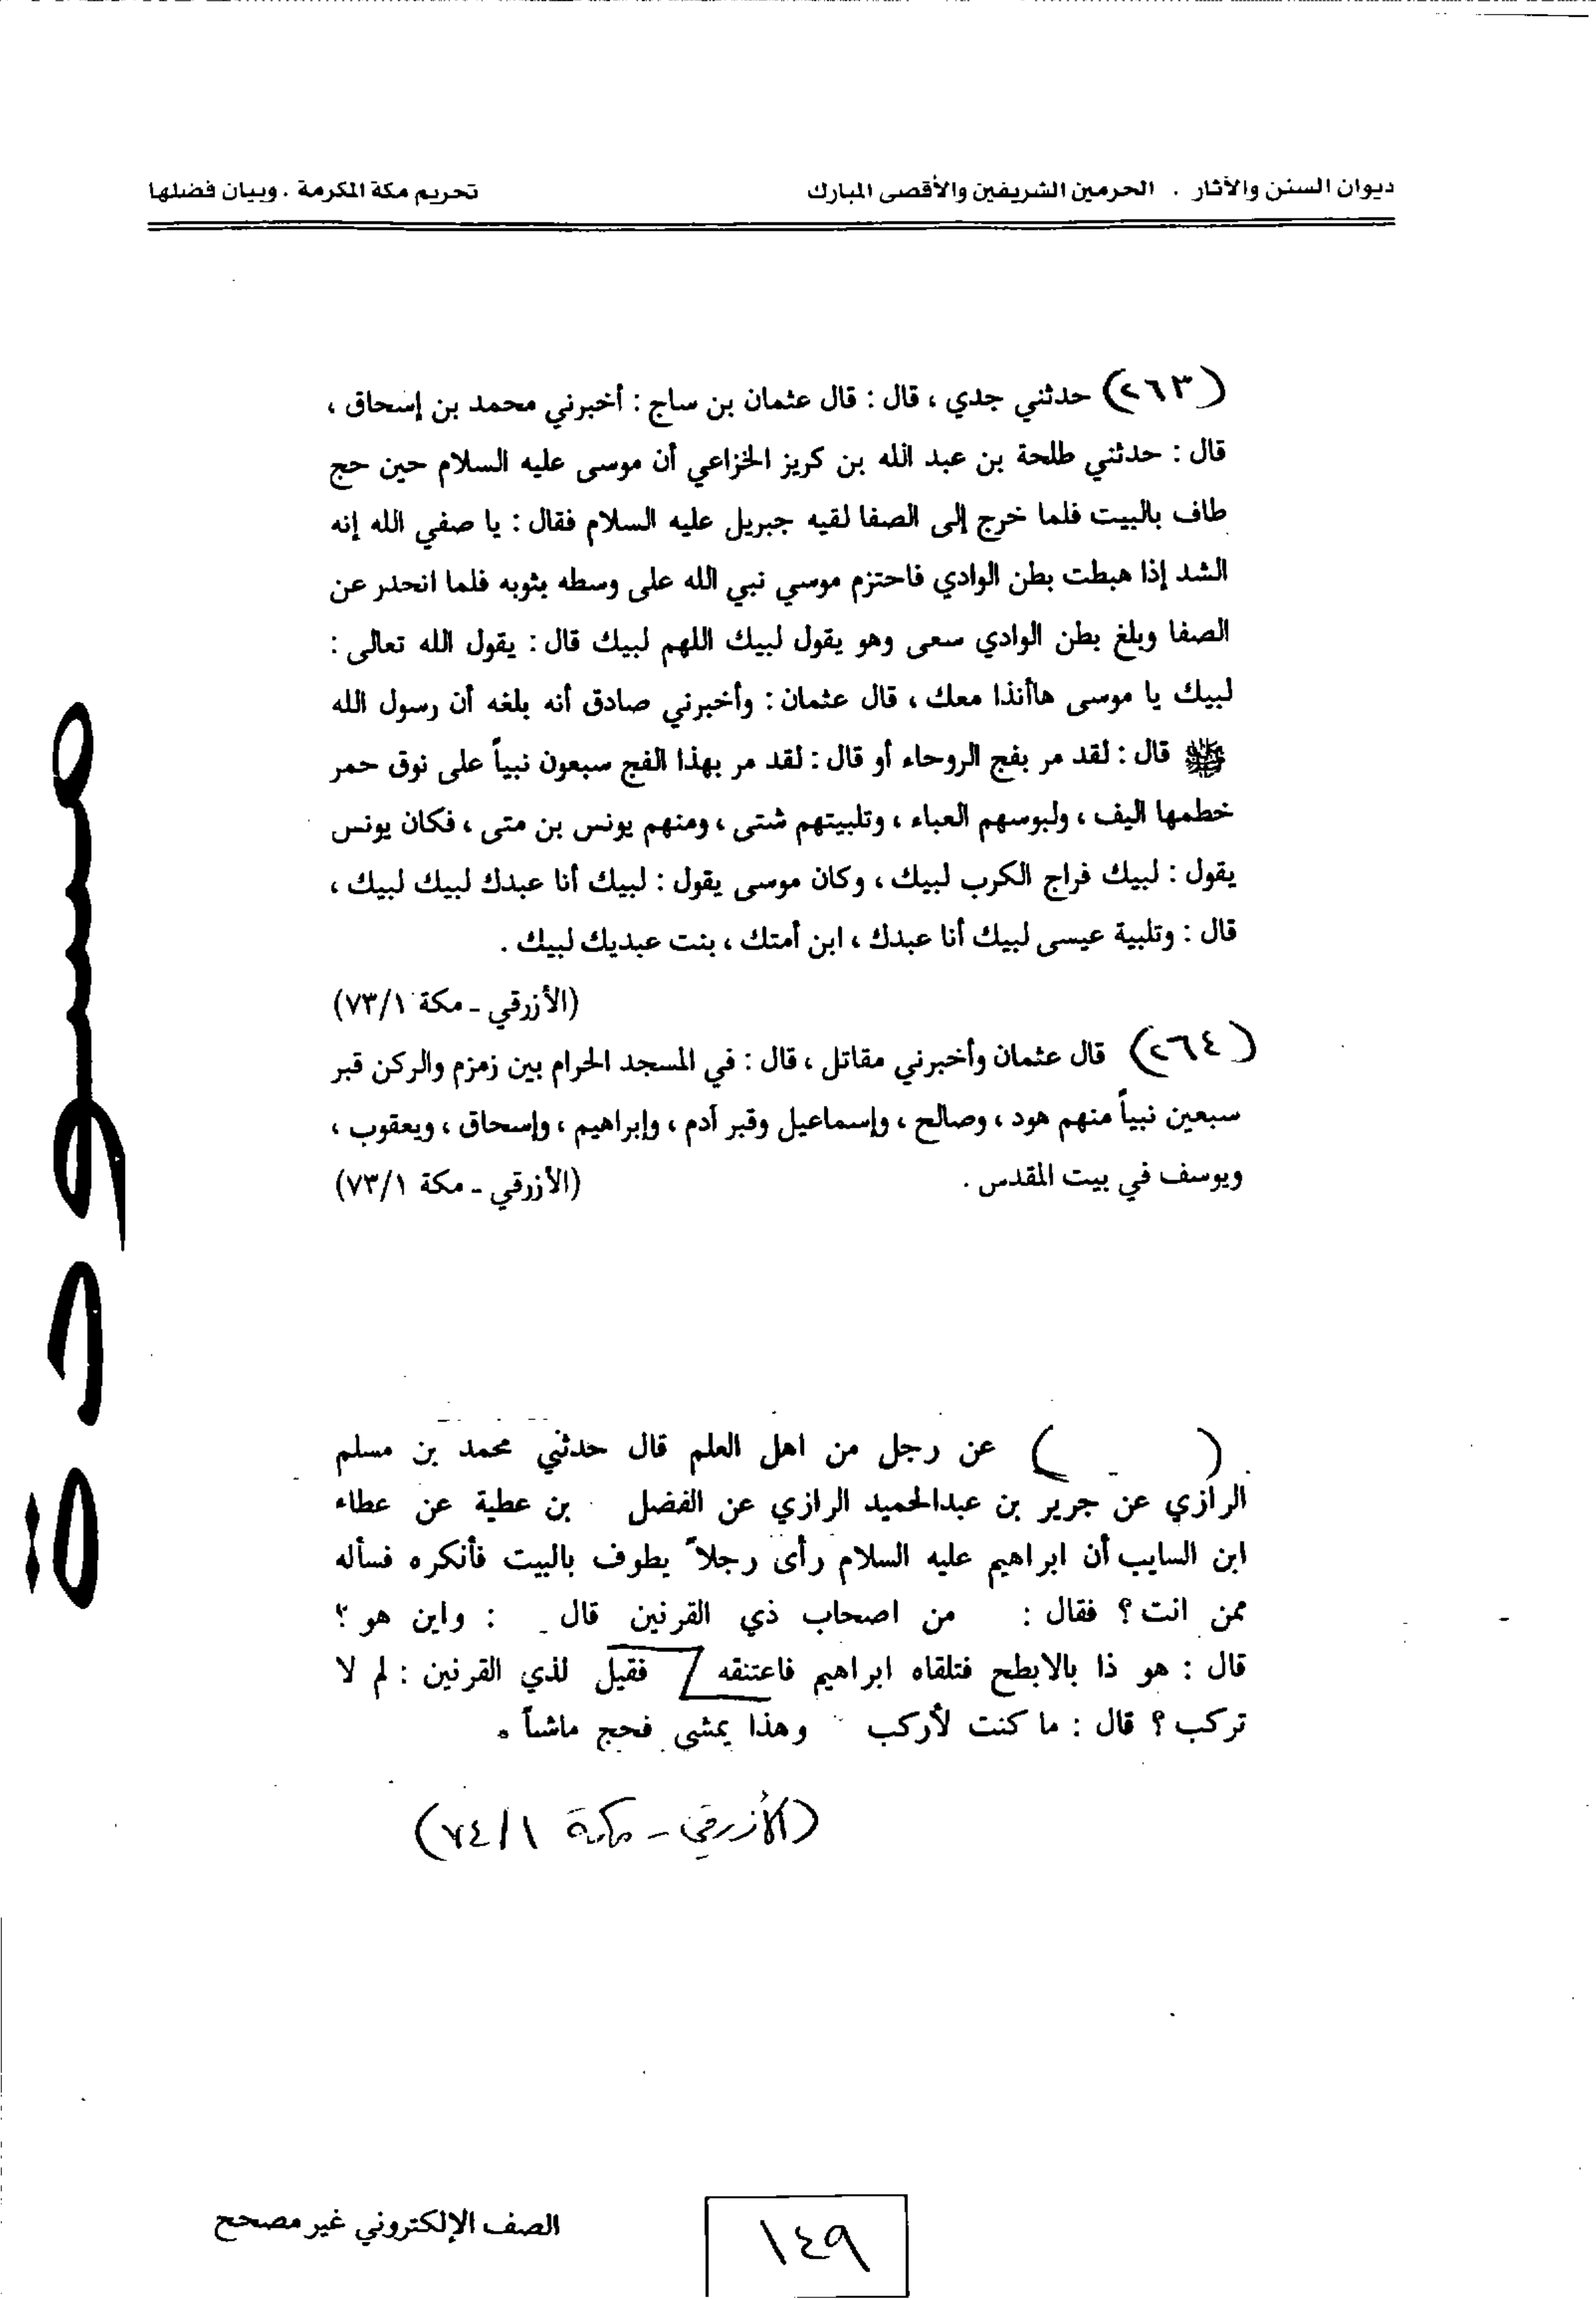 ديوان السنن والآثار . الحرمين الشريفين والأقصى المبارك
تحريم مكة المكرمة . وبيان فضلها
(٢٦٣) حدثني جدي ، قال : قال عثمان بن ساج : أخبرني محمد بن إسحاق ،
قال : حدثني طلحة بن عبد الله بن كريز الخزاعي أن موسى عليه السلام حين حج
طاف بالبيت فلما خرج إلى الصفا لقيه جبريل عليه السلام فقال : يا صفي الله إنه
الشد إذا هبطت بطن الوادي فاحتزم موسي نبي الله على وسطه بثوبه فلما انحدر عن
الصفا وبلغ بطن الوادي سعى وهو يقول لبيك اللهم لبيك قال : يقول الله تعالى :
لبيك يا موسى هاأنذا معك ، قال عثمان : وأخبرني صادق أنه بلغه أن رسول الله
ﷺ قال : لقد مر بفج الروحاء أو قال : لقد مر بهذا الفج سبعون نبياً على نوق حمر
خطمها اليف ، ولبوسهم العباء ، وتلبيتهم شتى ، ومنهم يونس بن متى ، فكان يونس
يقول : لبيك فراج الكرب لبيك ، وكان موسى يقول : لبيك أنا عبدك لبيك لبيك ،
قال : وتلبية عيسى لبيك أنا عبدك ، ابن أمتك ، بنت عبديك لبيك .
(الأزرقي - مكة ٧٣/١)
(٢٦٤) قال عثمان وأخبرني مقاتل ، قال : في المسجد الحرام بين زمزم والركن قبر
سبعين نبياً منهم هود ، وصالح ، وإسماعيل وقبر آدم ، وإبراهيم ، وإسحاق ، ويعقوب ،
ويوسف في بيت المقدس . (الأزرقي - مكة ٧٣/١)
( ) عن رجل من اهل العلم قال حدثني محمد بن مسلم
الرازي عن جرير بن عبدالحميد الرازي عن الفضل بن عطية عن عطاء
ابن السايب أن ابراهيم عليه السلام رأى رجلاً يطوف بالبيت فأنكره فسأله
ممن انت ؟ فقال : من اصحاب ذي القرنين قال : واين هو ؟
قال : هو ذا بالابطح فتلقاه ابراهيم فاعتنقه فقيل لذي القرنين : لم لا
تركب ؟ قال : ما كنت لأركب وهذا يمشي فحج ماشياً .
(الأزرقي - مكة ٧٤/١)
مسودة
الصف الإلكتروني غير مصحح
١٤٩